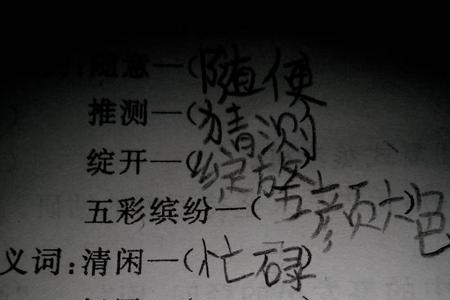 词:随意—(随便
推测—(猜测)
绽开—(绽放)
五彩缤纷—(五颜六色)
义词:清闲—(忙碌)